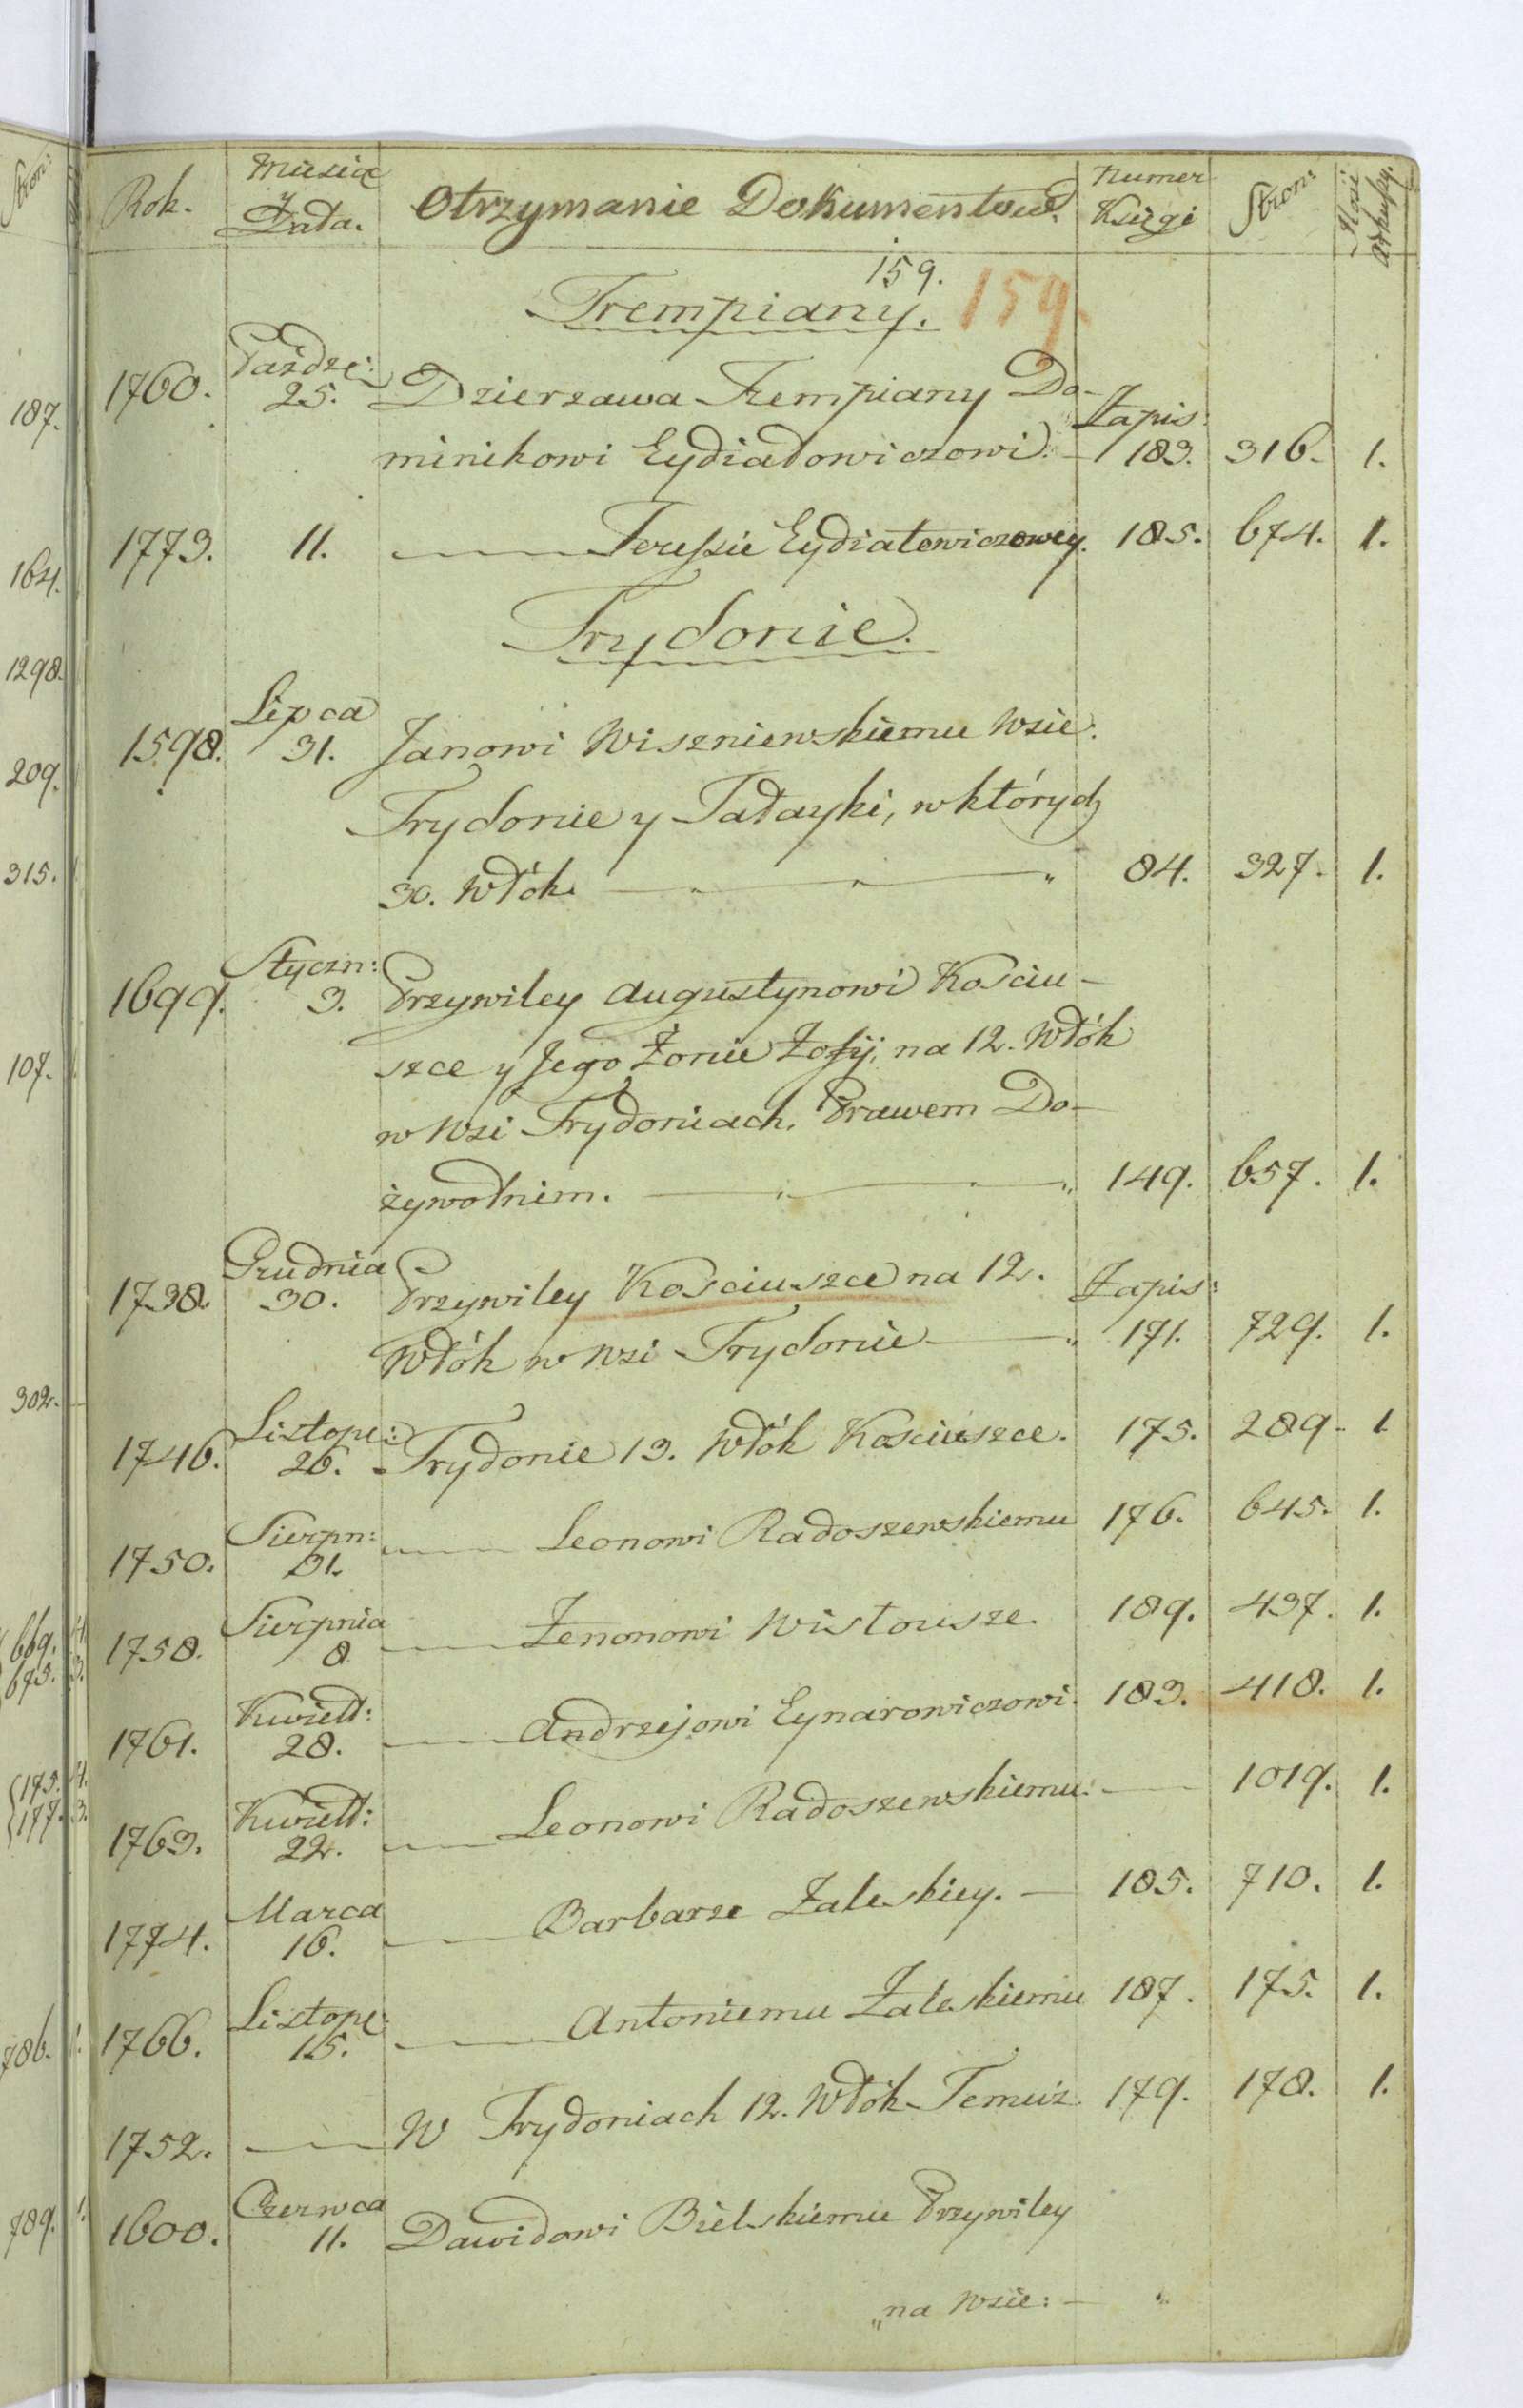 Rok. Miesiąc y Data. Otrzymanie Dokumentow. Numer Księgi Stron: Ilosć arkuszy.
159.
Trempiany. 159
1760. Paźdze: 25. Dzierzawa Trempiany Do-
minikowi Eydiatowiczowi. Zapis: 183. 316. 1.
1773. 11. Teressie Eydiatowiczowey. 185. 674. 1.
Trydonie.
1598. Lipca 31. Janowi Wiszniewskiemu Wsie:
Trydonie y Tatayki, w których
30. Włók. 84. 327. 1.
1699. Styczn: 3. Przywiley Augustynowi Kosciu-
szce y Jego Żonie Zofij, na 12. Włók
w Wsi Trydoniach. Prawem Do-
żywotnim. 149. 657. 1.
1738. Grudnia 30. Przywiley Kosciuszce na 12.
Włók w Wsi Trydonie Zapis: 171. 729. 1.
1746. Listope: 26. Trydonie 13. Włók Kosciuszce. 175. 289. 1
1750. Sierpn: 31. Leonowi Radoszewskiemu 176. 645. 1.
1758. Sierpnia 8 Zenonowi Wistousze. 189. 437. 1.
1761. Kwiett: 28. Andrzejowi Eynarowiczowi. 183. 418. 1.
1763. Kwiett: 22. Leonowi Radoszewskiemu. 1019. 1.
1774. Marca 16. Barbarze Zaleskiey. 185. 710. 1.
1766. Listope: 15. Antoniemu Zaleskiemu 187. 175. 1.
1752. W Trydoniach 12. Włók Temuż 179. 178. 1.
1600. Czerwca 11. Dawidowi Bielskiemu Przywiley
„na Wsie:
Stron:
187.
164.
1298.
209.
315.
107.
302.
669. 4.
675. 3.
175. 4.
177. 3.
786. 1.
789. 1.